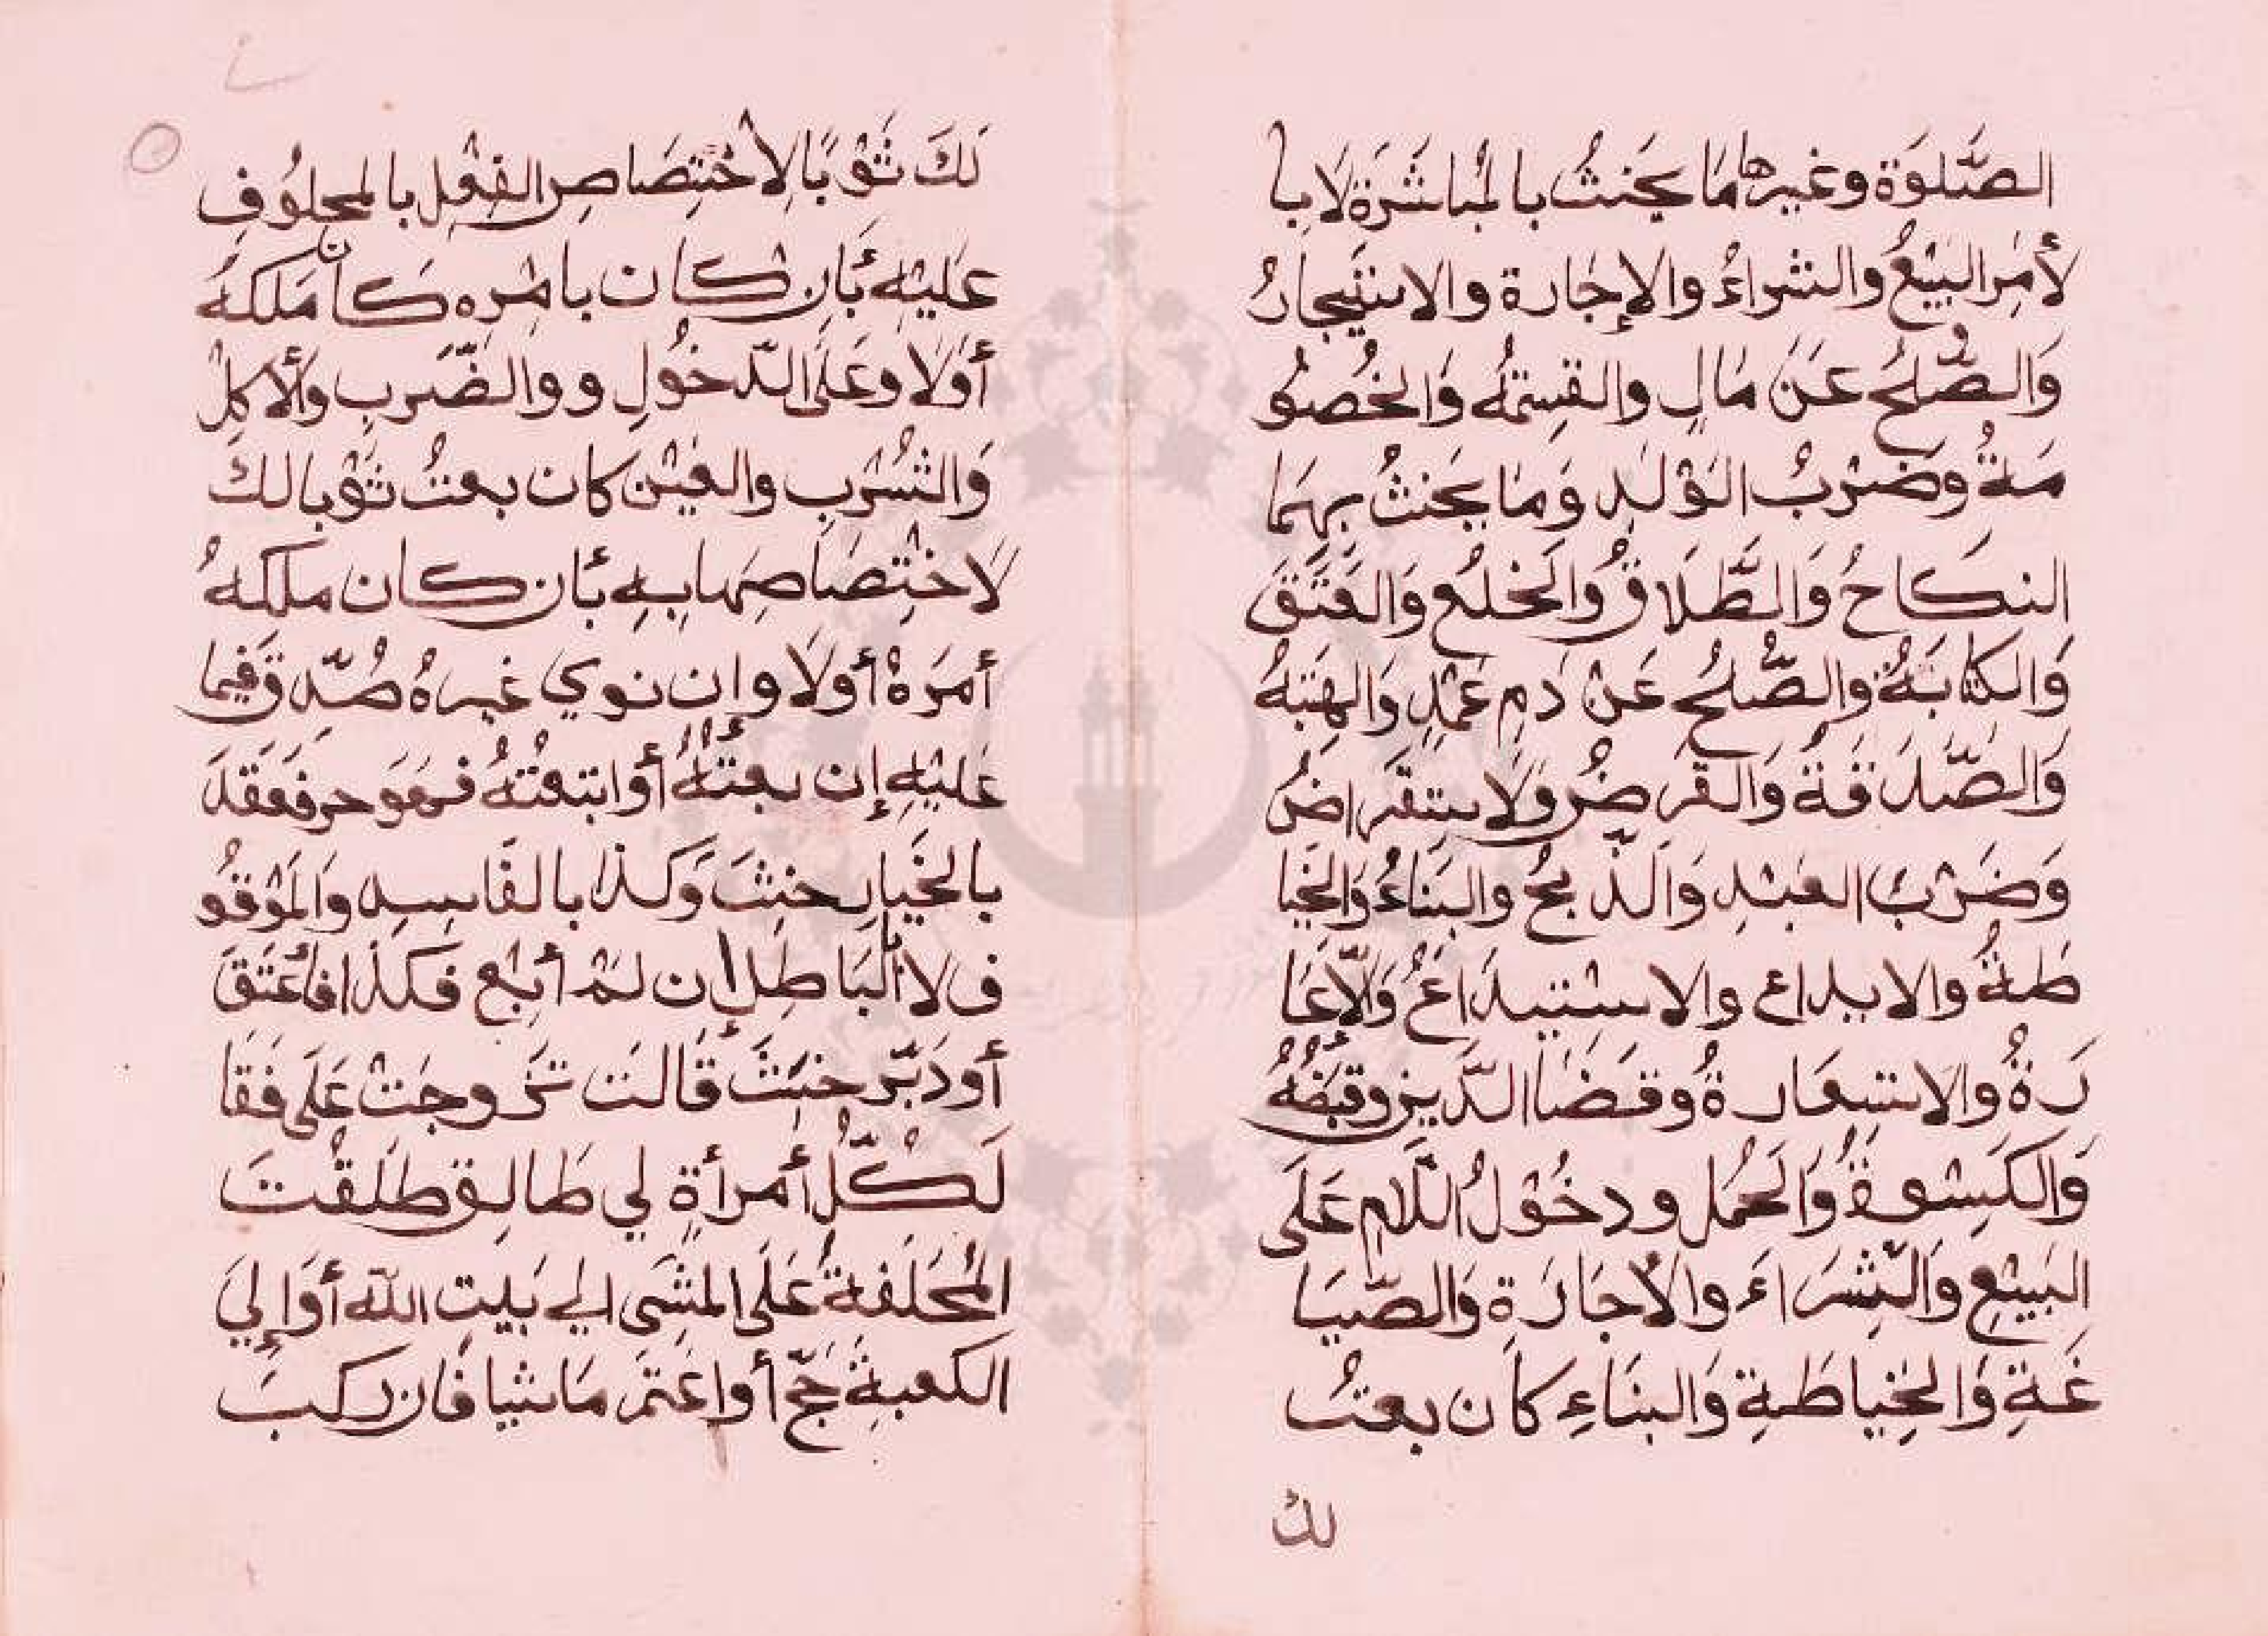 الصَّلوَة وغيرها مَا يحَنثُ بالمُباشَرَة لَا با
لأمَرِ البَيْعُ والشراءُ والإجَارة والاستيجارُ
وَالصُّلحُ عَنْ مَالٍ والقِسمَةُ وَالخُصُو
مَةُ وَضَرْبُ الوَلَدِ وَمَا يحَنثُ بهمَا
النكَاحُ وَالطَّلَاقُ وَالخلعُ وَالعَتَقَ
وَالكتَابَةُ والصُّلحُ عَنْ دَمِ عَمْدٍ وَالهَبَةُ
وَالصَّدَقَةُ وَالقَرضُ وَلاستقَراضُ
وَضَرْبُ العَبْدِ وَالذَّبحُ والبَناءُ وَالخيا
طَةُ والايداع والاسْتيدَاعُ وَالأعَا
رَةُ والاستعَارةُ وقَضَا الدَّين وقبَضُهُ
وَالكَسْوةُ وَالحَمُل ودخُوْلُ اللَّام عَلَى
البَيْعِ وَالشِرَاءَ والاجَارَةِ وَالصَّيَا
غَةِ وَالخِياطَةِ وَالبنَاءِ كأن بعتُ
لك
لَكَ ثَوْبًا لِاخْتِصَاصِ الفِعْلِ بالمحلوُفِ
عَليْهِ بَأن كان بامْرِه كَان مَلكَهُ
أوَلَا وعَلَى الدّخُولِ و والضّرَبِ والأكلْ
وَالشُرْبِ والعَيْن كان بعتُ ثَوْبا لكَ
لَاخْتِصَاصِهَا بِهِ بَأن كان ملكهُ
أمَرَهُ أولَا وإن نوي غيرهُ صُدِّقَ فيما
عَليْهِ إن بعتُهُ أو ابتعتُهُ فهَوَ حر فعَقدَ
بالخَيارِ حنِثَ وَكذا بالفَاسِدِ وَالمَوْقُو
ف لا بالبَاطِلِ إن لَمْ أبعْ فكذا فأعْتَقَ
أو دَبّر حنَثَ قَالتَ تَزوجَتْ عَلَى فَقَا
لَ كُلُّ أمرأةٍ لي طَالِق طَلَقَتَ
المُحَلَفةُ عَلَى المشَى الي بَيتِ اللّه أوَ إليَ
الكعبةِ حَجّ أو اعَتمَر مَاشيا فَان ركبَ